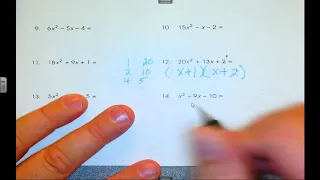 9. 6x² – 5x – 4 =
10. 15x² – x – 2 =
11. 18x² + 9x + 1 =
1 20
2 10
4 5
12. 20x² + 13x + 2 =
( x + 1 )( x + 2 )
13. 5x² 5 =
14. x² – 9x – 10 =